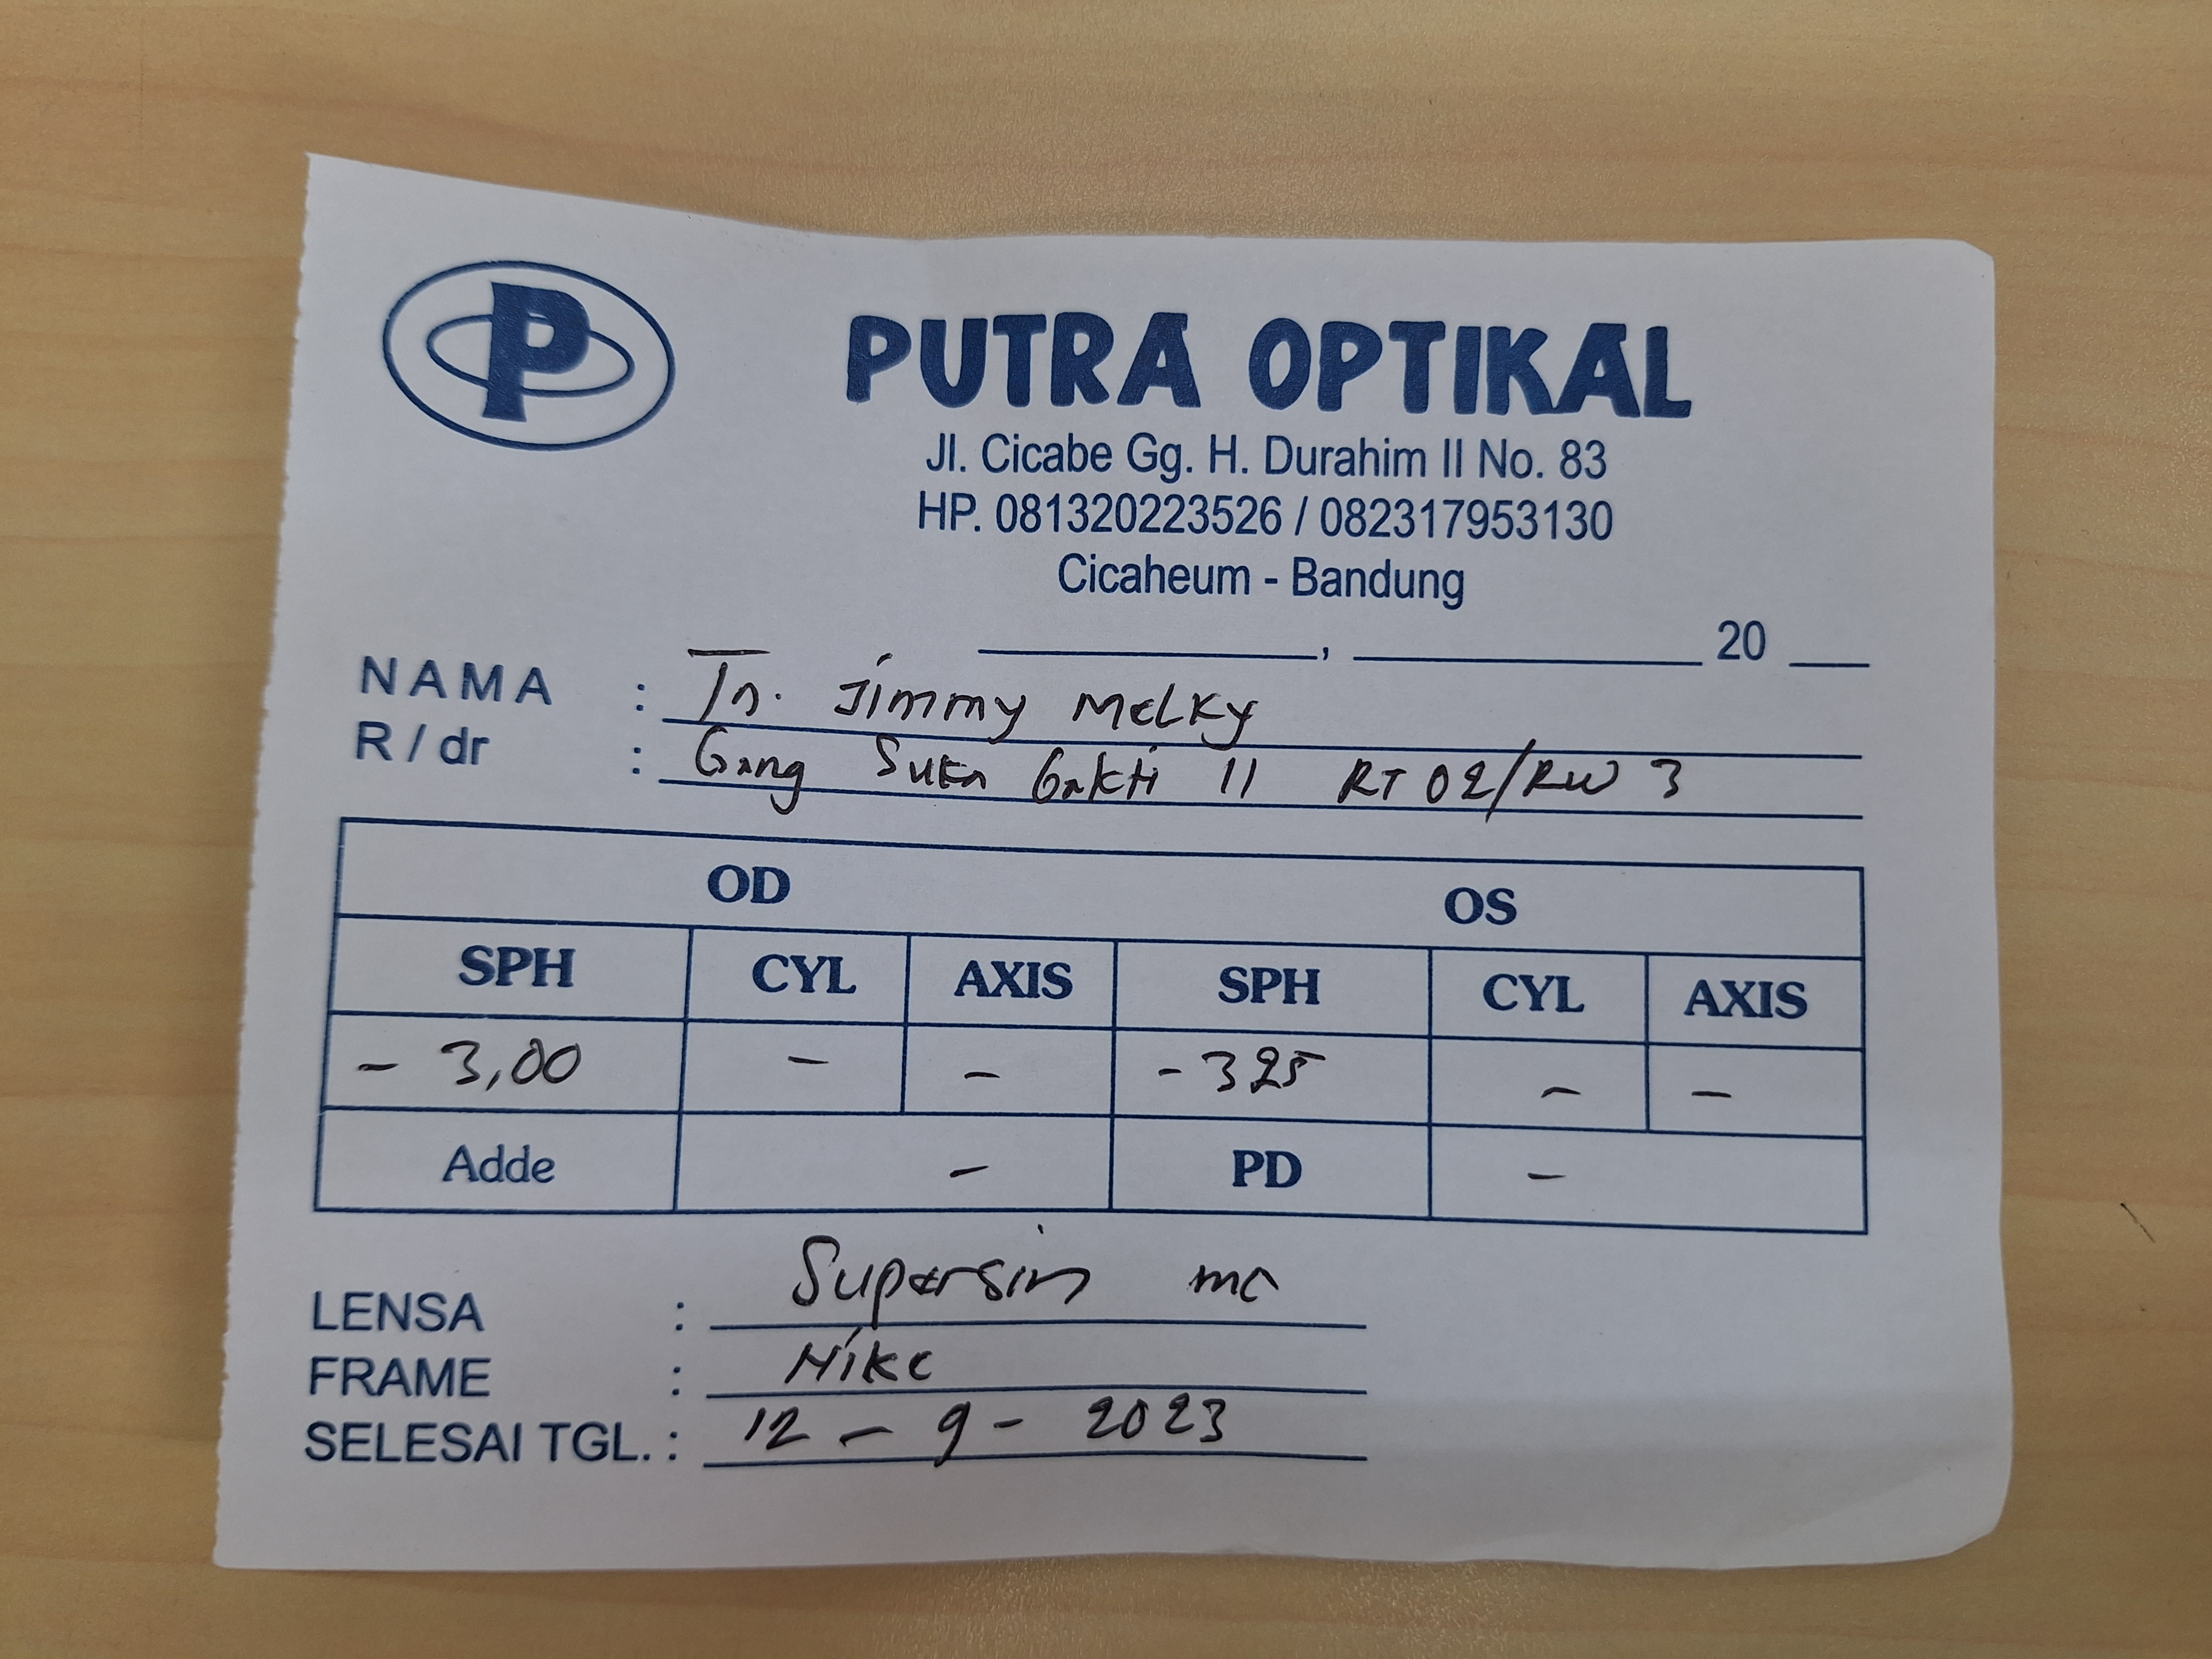 P
PUTRA OPTIKAL
Jl. Cicabe Gg. H. Durahim II No. 83
HP. 081320223526 / 082317953130
Cicaheum - Bandung
, 20
NAMA : Tn. Jimmy Melky
R / dr : Gang Suka Bakti II RT 02/RW 3
OD OS
SPH CYL AXIS SPH CYL AXIS
- 3,00 - - - 325 - -
Adde - PD -
LENSA : Supersin mc
FRAME : Nike
SELESAI TGL. : 12 - 9 - 2023